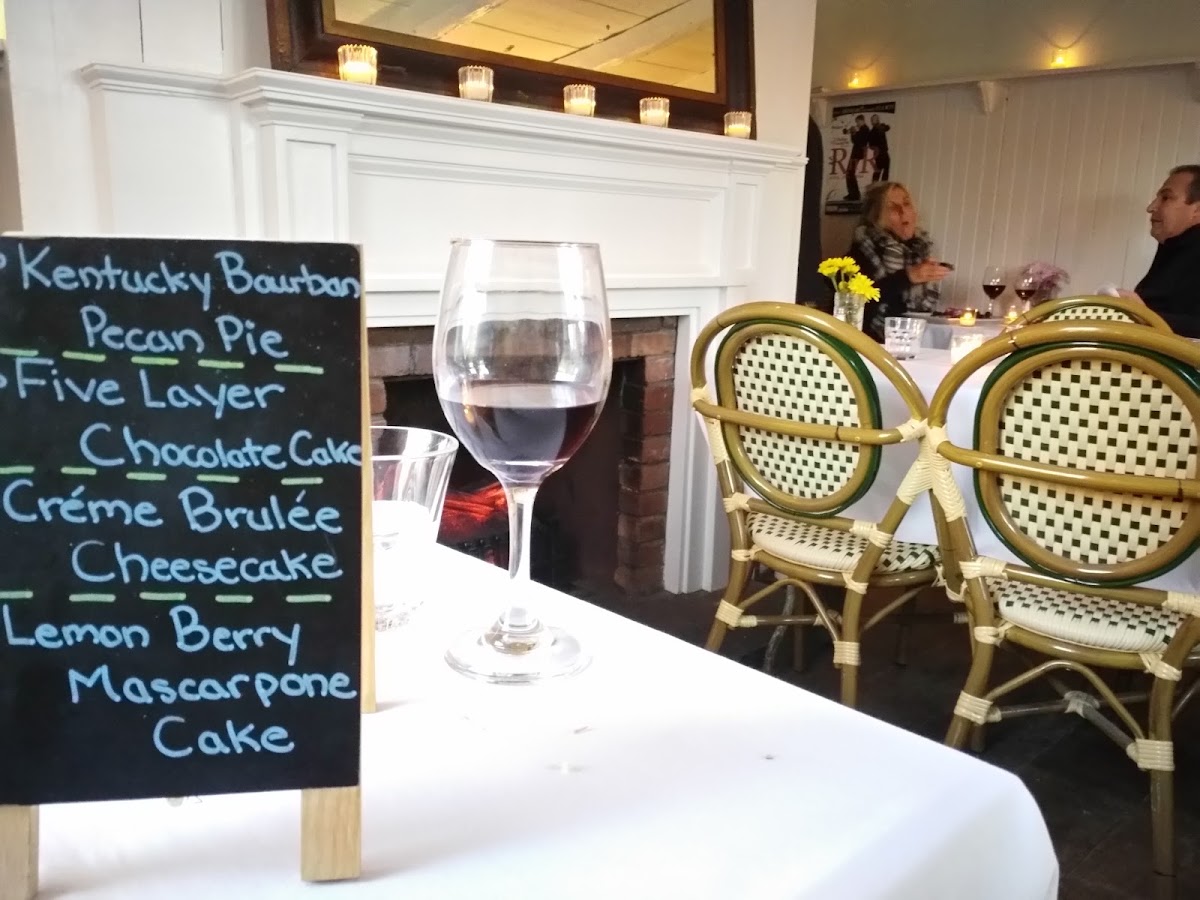 Kentucky Bourbon
Pecan Pie
Five Layer
Chocolate Cake
Créme Brulée
Cheesecake
Lemon Berry
Mascarpone
Cake